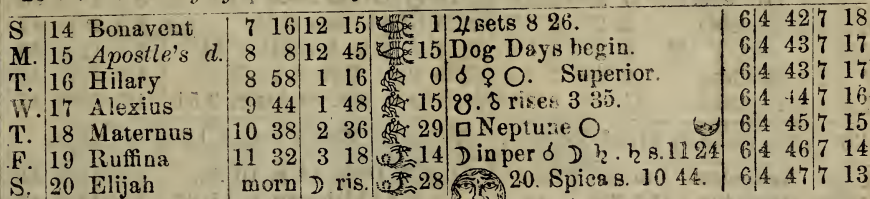 S 14 Bonavent 7 16 12 15 1 ♃ sets 8 26. 6 4 42 7 18
M. 15 Apostle's d. 8 8 12 45 15 Dog Days begin. 6 4 43 7 17
T. 16 Hilary 8 58 1 16 0 ☌ ♀ ○. Superior. 6 4 43 7 17
W. 17 Alexius 9 44 1 48 15 rises 3 35. 6 4 44 7 16
T. 18 Maternus 10 38 2 36 29 □ Neptune ○ 6 4 45 7 15
F. 19 Ruffina 11 32 3 18 14 ☽ in per ☌ ☽ ♄. ♄ s. 11 24 6 4 46 7 14
S. 20 Elijah morn ☽ ris. 28 20. Spica s. 10 44. 6 4 47 7 13